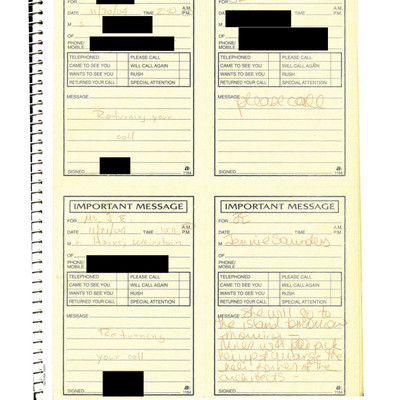 FOR
DATE 11/20/04 TIME 2:30 A.M. P.M.
M S
OF
PHONE/
MOBILE
TELEPHONED PLEASE CALL
CAME TO SEE YOU WILL CALL AGAIN
WANTS TO SEE YOU RUSH
RETURNED YOUR CALL SPECIAL ATTENTION
MESSAGE
Returning your
call
SIGNED 1184
DATE TIME A.M. P.M.
M
OF
PHONE/
MOBILE
TELEPHONED PLEASE CALL
CAME TO SEE YOU WILL CALL AGAIN
WANTS TO SEE YOU RUSH
RETURNED YOUR CALL SPECIAL ATTENTION
MESSAGE
please call
SIGNED 1184
IMPORTANT MESSAGE
FOR Mr. J. E
DATE 11/21/04 TIME A.M. P.M.
M
OF
PHONE/
MOBILE
TELEPHONED PLEASE CALL
CAME TO SEE YOU WILL CALL AGAIN
WANTS TO SEE YOU RUSH
RETURNED YOUR CALL SPECIAL ATTENTION
MESSAGE
Returning
your call
SIGNED 1184
IMPORTANT MESSAGE
FOR JE
DATE TIME A.M. P.M.
M Jennie Saunders
OF
PHONE/
MOBILE
TELEPHONED PLEASE CALL
CAME TO SEE YOU WILL CALL AGAIN
WANTS TO SEE YOU RUSH
RETURNED YOUR CALL SPECIAL ATTENTION
MESSAGE She will go to
the island tomorrow
morning -
pick
her up the
of the
architects -
SIGNED 1184